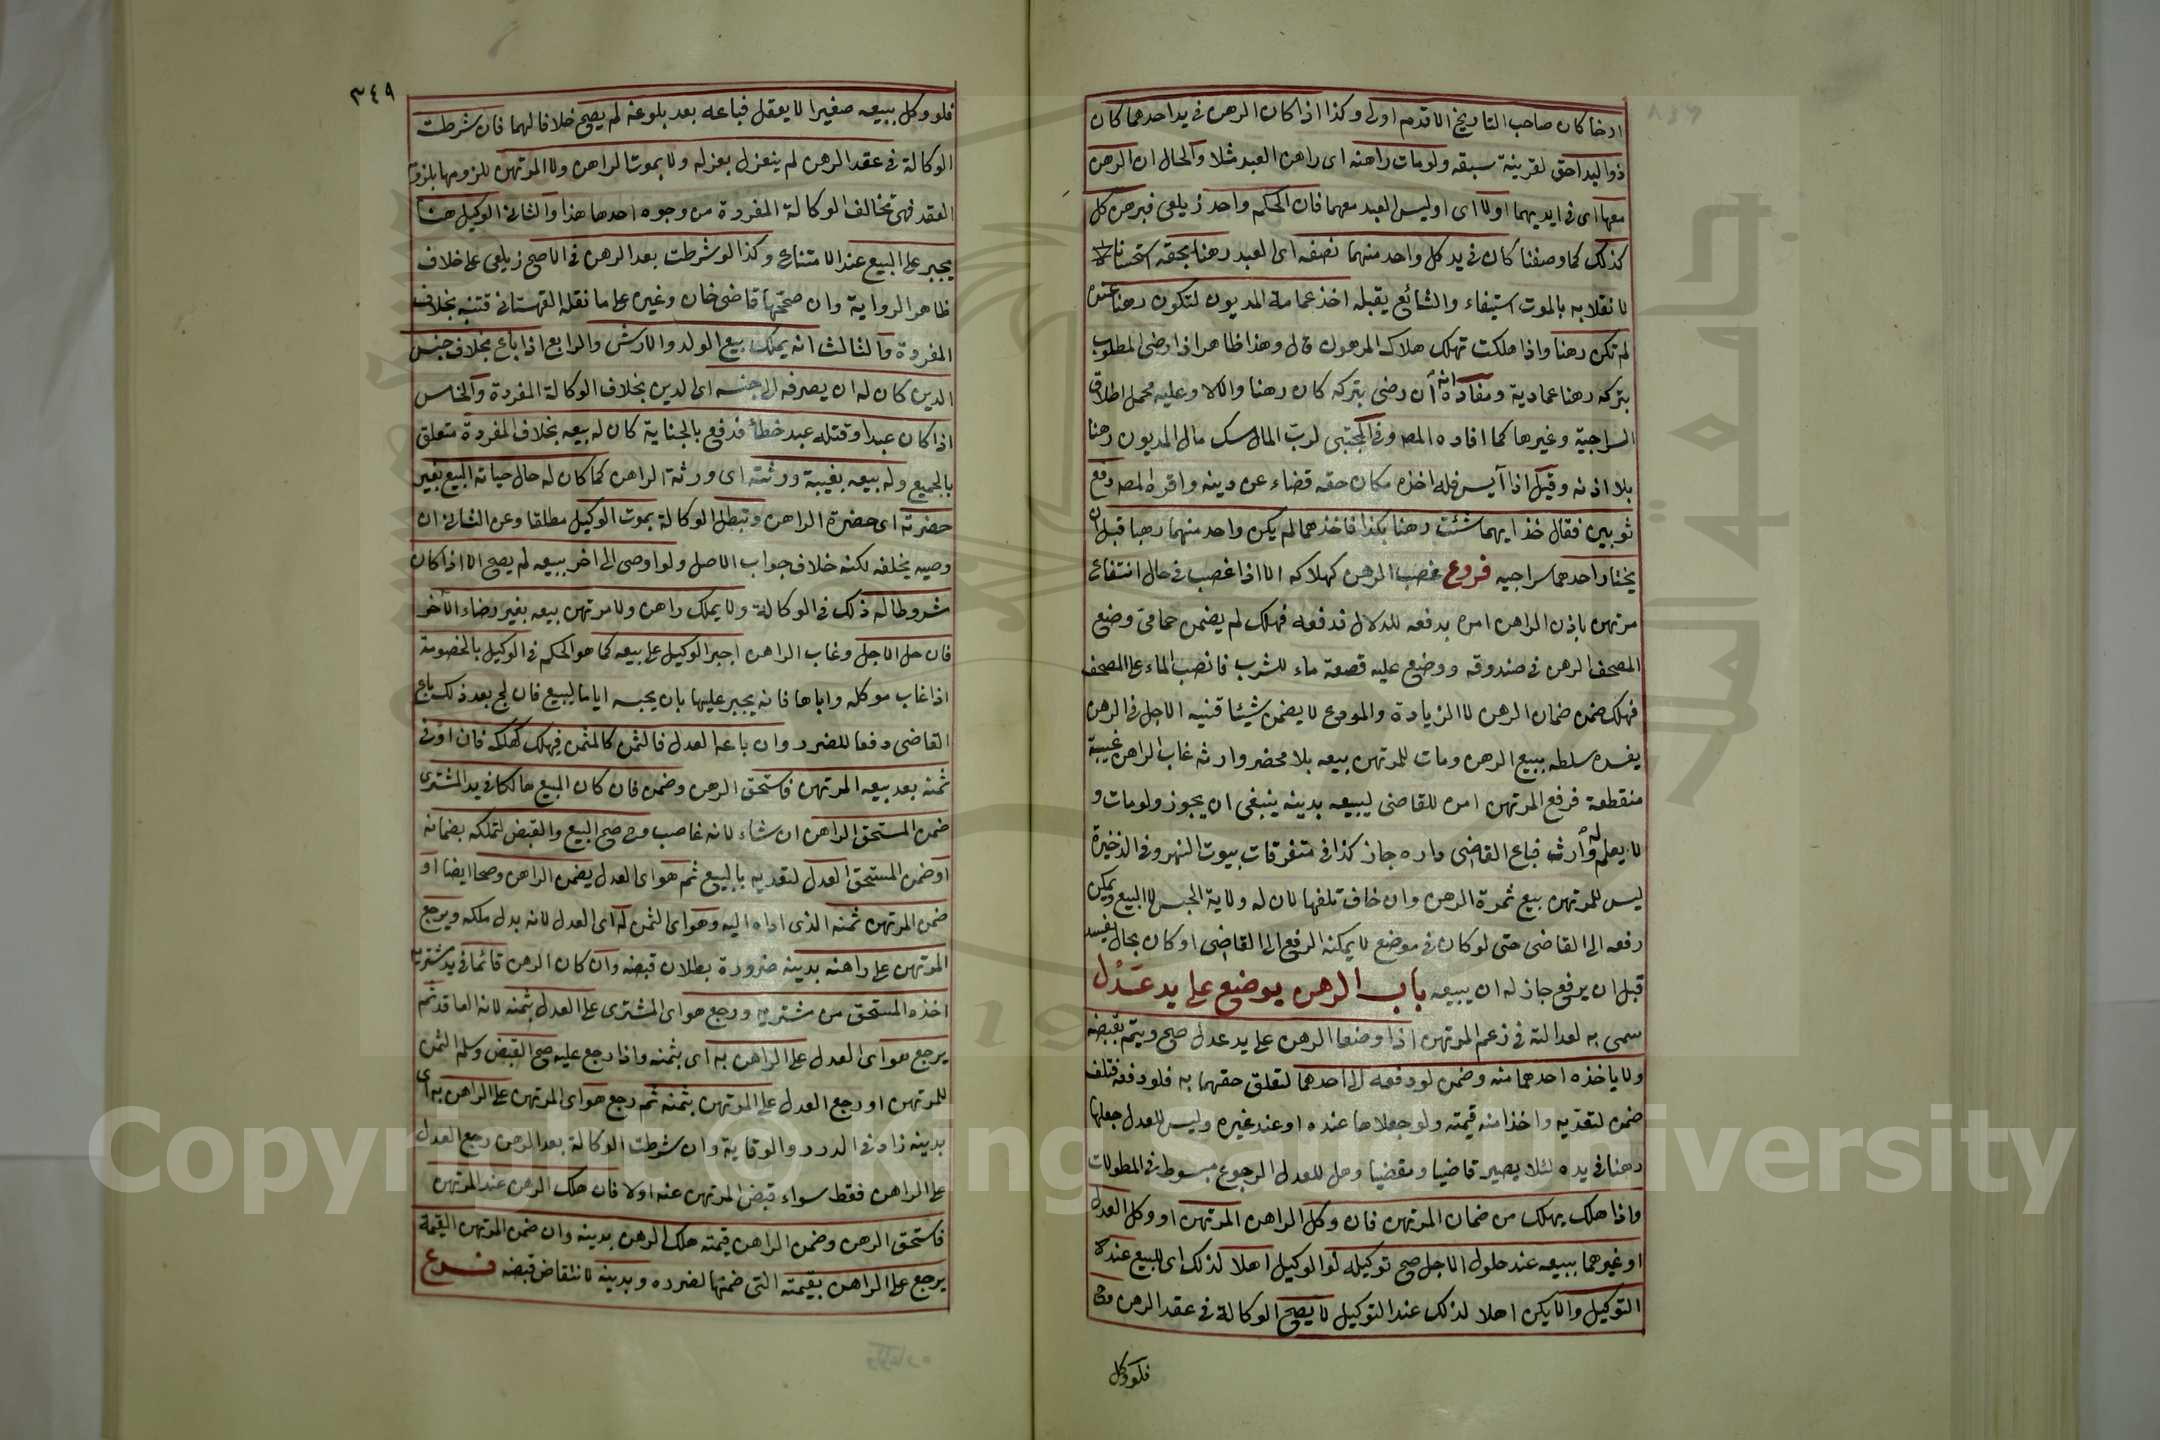 ارخا كان صاحب التاريخ الاقدم اولى وكذا اذا كان الرهن في يد احدهما كان
ذو اليد احق لقرينة سبقه ولو مات راهنه اى راهن العبد مثلا والحال ان الرهن
معها اى في ايديهما اولا اى او ليس العبد معهما فان الحكم واحد زيلعى فبرهن كل
كذلك كما وصفنا كان في يد كل واحد منهما نصفه اى العبد رهنا بحقه استحسانا
لانقلابه بالموت استيفاء والشائع يقبله اخذ عمامة المديون لتكون رهنا عنده
لم تكن رهنا واذا هلكت تهلك هلاك المرهون قال وهذا ظاهر اذا رضى المطلوب
بتركه رهنا عمادية ومفاده انه ان رضى بتركه كان رهنا والا لا وعليه يحمل اطلاق
السراجية وغيرها كما افاده المص وفي المجتبى لرب المال مسك مال المديون رهنا
بلا اذنه وقيل اذا آيس فله اخذه مكان حقه قضاء عن دينه واقره المص دفع
ثوبين فقال خذ ايهما شئت رهنا بكذا فاخذهما لم يكن واحد منهما رهنا قبل ان
يختار احدهما سراجيه فروع غصب الرهن كهلاكه الا اذا غصب في حال انتفاع
مرتهن باذن الراهن امره بدفعه للدلال فدفعه فهلك لم يضمن حمامى وضع
المصحف الرهن في صندوقه ووضع عليه قصعة ماء للشرب فانصب الماء على المصحف
فهلك ضمن ضمان الرهن لا الزيادة والمودع لا يضمن شيئا قنيه الاجل في الرهن
يفسده سلطه ببيع الرهن ومات للمرتهن بيعه بلا محضر وارثه غاب الراهن غيبة
منقطعة فرفع المرتهن امره للقاضى ليبيعه بدينه ينبغى ان يجوز ولو مات و
لا يعلم له وارث فباع القاضى داره جاز كذا في متفرقات بيوت النهر وفي الذخيرة
ليس للمرتهن بيع ثمرة الرهن وان خاف تلفها لان له ولاية الحبس لا البيع ويمكن
رفعه الى القاضى حتى لو كان في موضع لا يمكنه الرفع الى القاضى او كان بحال يفسد
قبل ان يرفع جاز له ان يبيعه باب الرهن يوضع على يد عَدْل
سمى به لعدالته في زعم المرتهن اذا وضعا الرهن على يد عدل صح ويتم بقبضه
ولا ياخذه احدهما منه وضمن لو دفعه الى احدهما لتعلق حقهما به فلو دفعه فتلف
ضمن لتعديه واخذا منه قيمته ولو جعلاها عنده او عند غيره وليس للعدل جعلها
رهنا في يده لئلا يصير قاضيا ومقضيا وهل للعدل الرجوع مبسوط في المطولات
واذا هلك يهلك من ضمان المرتهن فان وكل الراهن المرتهن او وكل العدل
او غيرهما ببيعه عند حلول الاجل صح توكيله لو الوكيل اهلا لذلك اى للبيع عند
التوكيل والا يكن اهلا لذلك عند التوكيل لا يصح الوكالة في عقد الرهن
فلو وكل
٣٤٩
فلو وكل ببيعه صغيرا لا يعقل فباعه بعد بلوغه لم يصح خلافا لهما فان شرطت
الوكالة في عقد الرهن لم ينعزل بعزله ولا بموت الراهن ولا المرتهن للزومها بلزوم
العقد فهى تخالف الوكالة المفردة من وجوه احدها هذا والثانى الوكيل هنا
يجبر على البيع عند الامتناع وكذا لو شرطت بعد الرهن في الاصح زيلعى على خلاف
ظاهر الرواية وان صححها قاضى خان وغيره على ما نقله القهستانى فتنبه بخلاف
المفردة والثالث انه يملك بيع الولد والارش والرابع اذا باع بخلاف جنس
الدين كان له ان يصرفه الى جنسه اى الدين بخلاف الوكالة المفردة والخامس
اذا كان عبدا وقتله عبد خطأ فدفع بالجناية كان له بيعه بخلاف المفردة متعلق
بالجميع وله بيعه بغيبة ورثته اى ورثة الراهن كما كان له حال حياته البيع بغير
حضرته اى حضرة الراهن وتبطل الوكالة بموت الوكيل مطلقا وعن الثانى ان
وصيه يخلفه لكنه خلاف جواب الاصل ولو اوصى الى اخر ببيعه لم يصح الا اذا كان
شروطا له ذلك في الوكالة ولا يملك راهن ولا مرتهن بيعه بغير رضاء الآخر
فان حل الاجل وغاب الراهن اجبر الوكيل على بيعه كما هو الحكم في الوكيل بالخصومة
اذا غاب موكله واباها فانه يجبر عليها بان يحبسه اياما ليبيع فان لج بعد ذلك باع
القاضى دفعا للضرر وان باعه العدل فالثمن كالمثمن فهلك كهلكه فان اوفى
ثمنه بعد بيعه المرتهن فاستحق الرهن وضمن فان كان المبيع هالكا في يد المشترى
ضمن المستحق الراهن ان شاء لانه غاصب وح صح البيع والقبض لتملكه بضمانه
او ضمن المستحق العدل لتعديه بالبيع ثم هو اى العدل يضمن الراهن وصحا ايضا او
ضمن المرتهن ثمنه الذى اداه اليه وهو اى الثمن له اى العدل لانه بدل ملكه ويرجع
المرتهن على راهنه بدينه ضرورة بطلان قبضه وان كان الرهن قائما في يد مشتريه
اخذه المستحق من مشتريه ورجع هو اى المشترى على العدل بثمنه لانه العاقد ثم
يرجع هو اى العدل على الراهن به اى بثمنه واذا رجع عليه صح القبض وسلم الثمن
للمرتهن او رجع العدل على المرتهن بثمنه ثم رجع هو اى المرتهن على الراهن به اى
بدينه زاد في الدرر والوقاية وان شرطت الوكالة بعد الرهن رجع العدل
على الراهن فقط سواء قبض المرتهن عنه اولا فان هلك الرهن عند المرتهن
فاستحق الرهن وضمن الراهن قيمته هلك الرهن بدينه وان ضمن المرتهن القيمة
يرجع على الراهن بقيمته التى ضمنها لضرره وبدينه لانتقاض قبضه فرع
Copyright © King Saud University